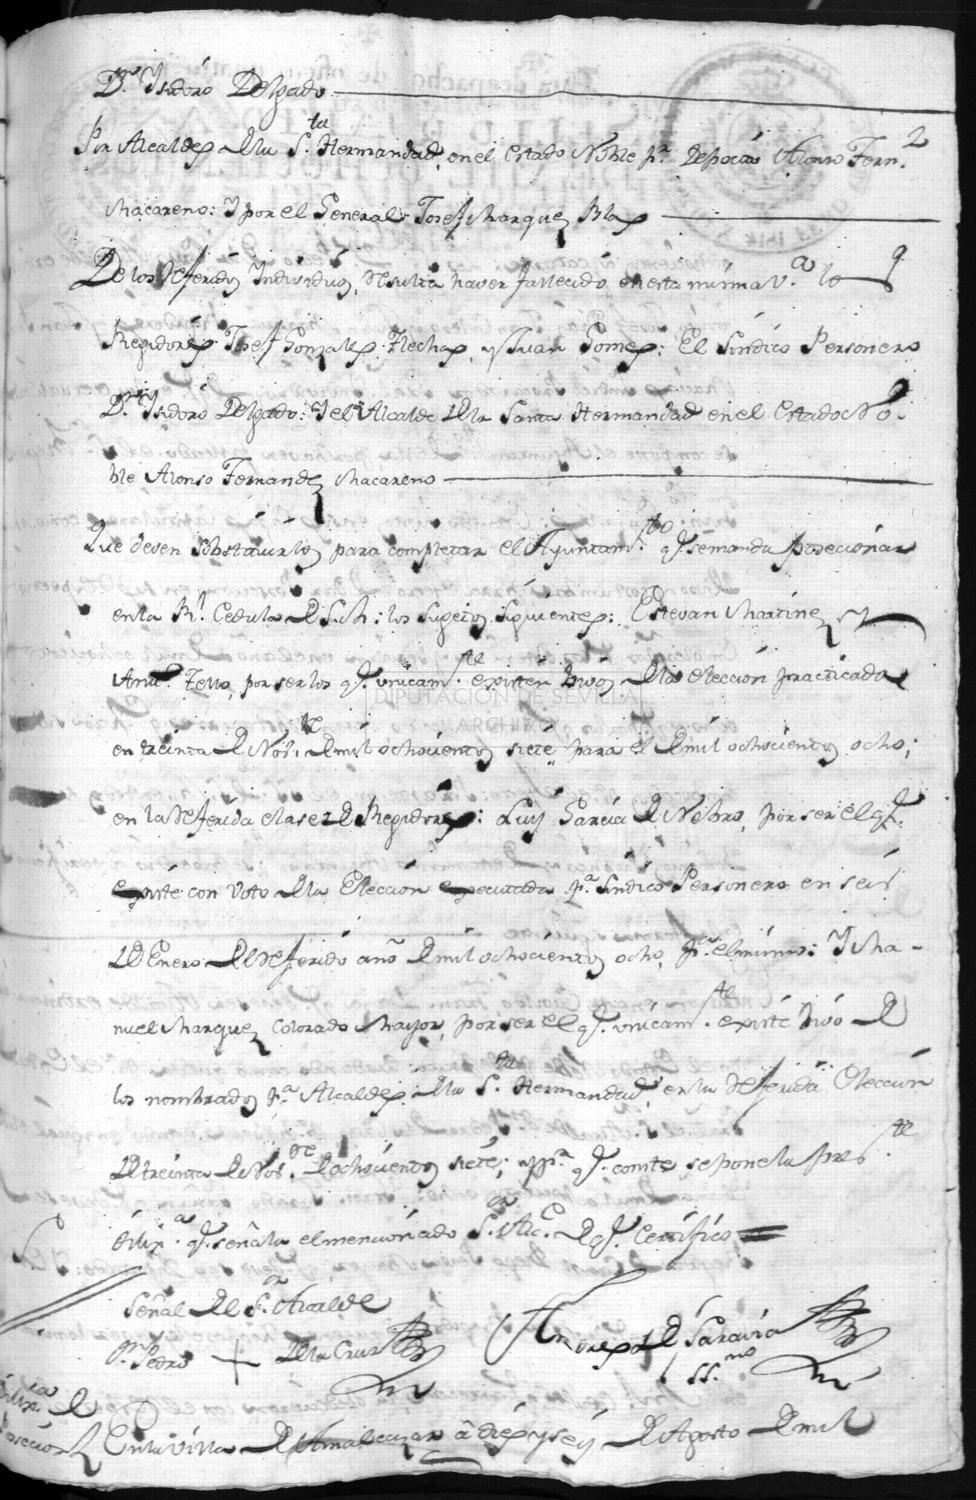 Dn. Ysidóro Delgado
Por Alcaldes dela Sta. Hermandad, en el Estado Noble pr. depocás Alonso Fernz.
Macareno: Y por el General Josef Marquez Blas
De los referidos Yndividuos, resulta haver fallecido en esta misma Va. los
Regidores Josef Gonzales Flechas, y Juan Gomes: El Síndico Personero
Dn. Ysidóro Delgado: Y el Alcalde dela Santa Hermandad en el Estado No-
ble Alonso Fernandez Macareno
Que deven substituirlos para completar el Ayuntamto. q.e se manda posecionar
en la Rl. Cedula de S.M: los Sugetos siguientes: Estevan Martinez y
Anto. Tello, por ser los q.e unicamte. existen vivos dela elección practicada
en treinta de Nove. de mil ochocientos siete para el de mil ochocientos ocho;
en la referida clase de Regidores: Luis García de Nebro, por ser el q.e
existe con voto dela Elección execútada pa. Síndico Personero en seis
de Enero del referido año de mil ochocientos ocho, pa. el mismo: Y Ma-
nuel Marquez Colorado Mayor, por ser el q.e unicamte. existe vivo de
los nombrados pa. Alcaldes dela Sta. Hermandad, en la referida Elección
de treinta de Nove. de ochocientos siete; y pa. q.e conste se pone la preste.
dilixa. q.e señala el mencionado Sor. Alce. de q.e Certifico
Señal del Sor. Alcalde
Pr. Pedro + dela Cruz
Andres de Saravia
SSno
Dilixa. de
Poseción
En la Villa de Amalcazar á diez y seis de Agosto de mil
DIPUTACIÓN DE SEVILLA
ARCHIVO